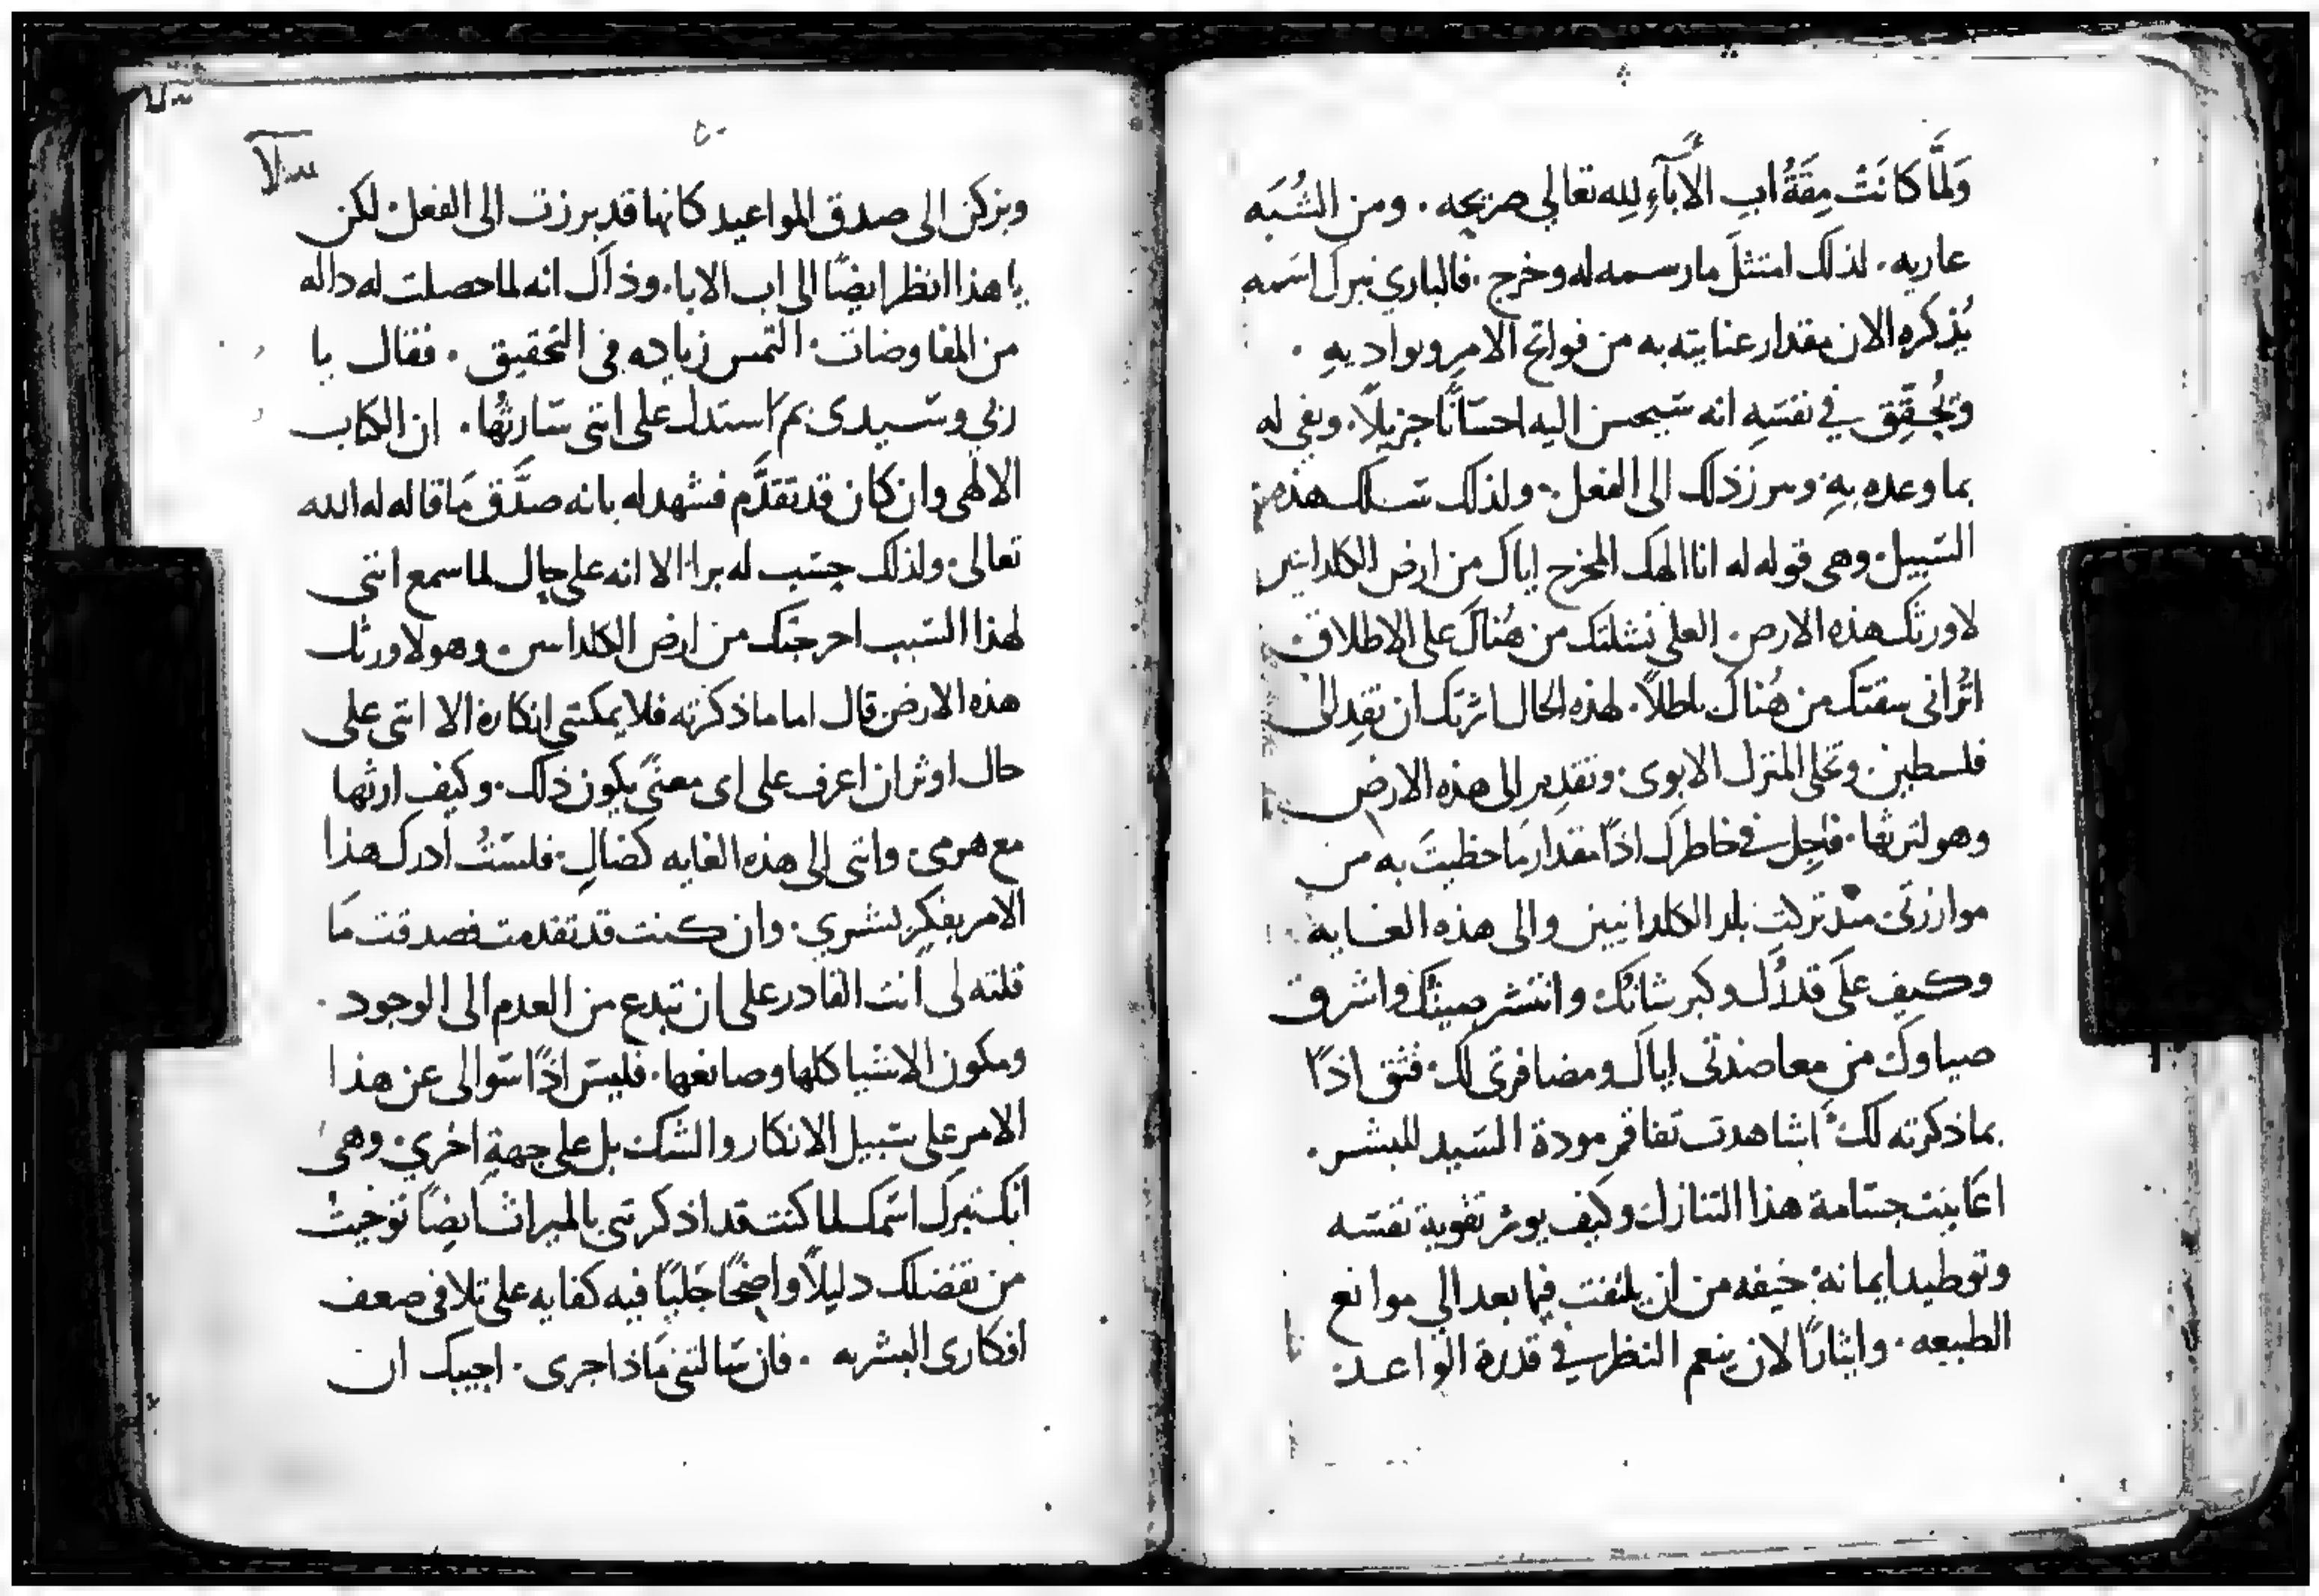 وَلمَّا كانَتْ مِقَةُ ابِ الأبآءِ لِله تعالي صريحه . ومن الشُبَه
عاريه . لذلك امتثلَ ما رسمه له وخرج . فالباري تبرك اسمه
يُذكره الان مقدار عنايته به من فواتح الامر وبواديهِ .
وتُحقِّق في نفسِهِ انه سيحسن اليه احسانًا جزيلًا . ويفي له
بما وعده بهِ . ويبرز ذلك الى الفعل . ولذلك سلك هذه
السبيل . وهي قوله له انا الهك المخرج اياك من ارض الكلدانيين
لاورثك هذه الارض . العلي نشلتك من هُناك على الاطلاق .
اتُراني سقتك من هُناك باطلًا . لهذه الحال اثرتك ان تفِد الى
فلسطين . وتخلى المنزل الابوى . وتقدير الى هذه الارض
وهو لترثها . فاجِل في خاطرك اذًا مقدار ما حظيتَ به من
موازرتى منذ تركت بلد الكلدانيين والى هذه الغايه
وكيف علَى قدرُك وكبر شانك وانتشر صيتك واشرق
ضياوك من معاضدتى اياك ومضافرتى لك . فثق اذًا
بما ذكرته لك . اشاهدت تفاقم مودة السيد للبشر .
اعاينت جسامة هذا التنازل . وكيف يوثر تقوية نفسه
وتوطيد ايمانه . خيفه من ان يلتفت فيما بعد الي موانع
الطبيعه . وايثارًا لان ينعم النظر في قدرة الواعد .
ويركن الى صدق المواعيد كانها قد برزت الى الفعل . لكن
يا هذا انظر ايضًا الى اب الابا . وذاك انه لما حصلت له داله
من المفاوضات . التمس زياده في التحقيق . فقال يا
ربي وسيدى بم استدل على اننى سارثُها . ان الكتاب
الالهى وان كان قد تقدَّم فشهد له بانه صدَّق ما قاله له الله
تعالى . ولذلك حسب له برا الا انه على حال لما سمع اننى
لهذا السبب اخرجتك من ارض الكلدانين . وهو لاورثك
هذه الارض قال اما ما ذكرته فلا يمكننى انكاره الا اننى على
حال اوثر ان اعرف على اى معنًى يكون ذلك . وكيف ارثها
مع هرمى . وانى الى هذه الغايه كضالٍ . فلستُ أدرك هذا
الامر بفكرٍ بشري . وان كنت قد تقدمت فصدقت ما
قلته لى أنت القادر على ان تبدع من العدم الى الوجود .
ومكون الاشيا كلها وصانعها . فليس اذًا سوالى عن هذا
الامر على سبيل الانكار والشك بل على جهةٍ اخري . وهى
انك تبرك اسمك لما كنت قد اذكرتنى بالميراث ايضًا توخيتُ
من تفضلك دليلًا واضحًا جليًا فيه كفايه على تلافى ضعف
افكارى البشريه . فان سالتنى ماذا جرى . اجيبك ان